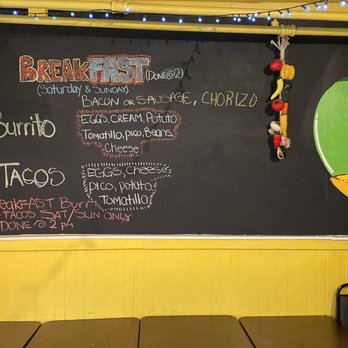 BREAKFAST (DONE@2)
(Saturday & SUNDAY)
BACON OR SAUSAGE, CHORIZO
Burrito
EGGS, CREAM, POTATO
TOMATILLO, PICO, BEANS,
CHEESE
TACOS
EGGS, CHEESE
PICO, POTATO
TOMATILLO
EAKFAST Burr
TACOS SAT/SUN ONLY
DONE @ 2 PM